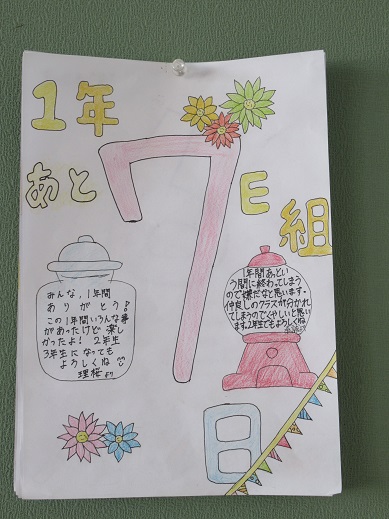 1年
あと
7
E
組
日
みんな、1年間
ありがとう!
この1年間いろんな事
があったけど楽し
かったよ! 2年生
3年生になっても
よろしくね
理桜より
1年間あっとい
う間に終わってしまう
ので嫌だなと思います。
仲良しのクラスが分かれ
てしまうのでくやしいと思い
ます。2年生でもよろしくね